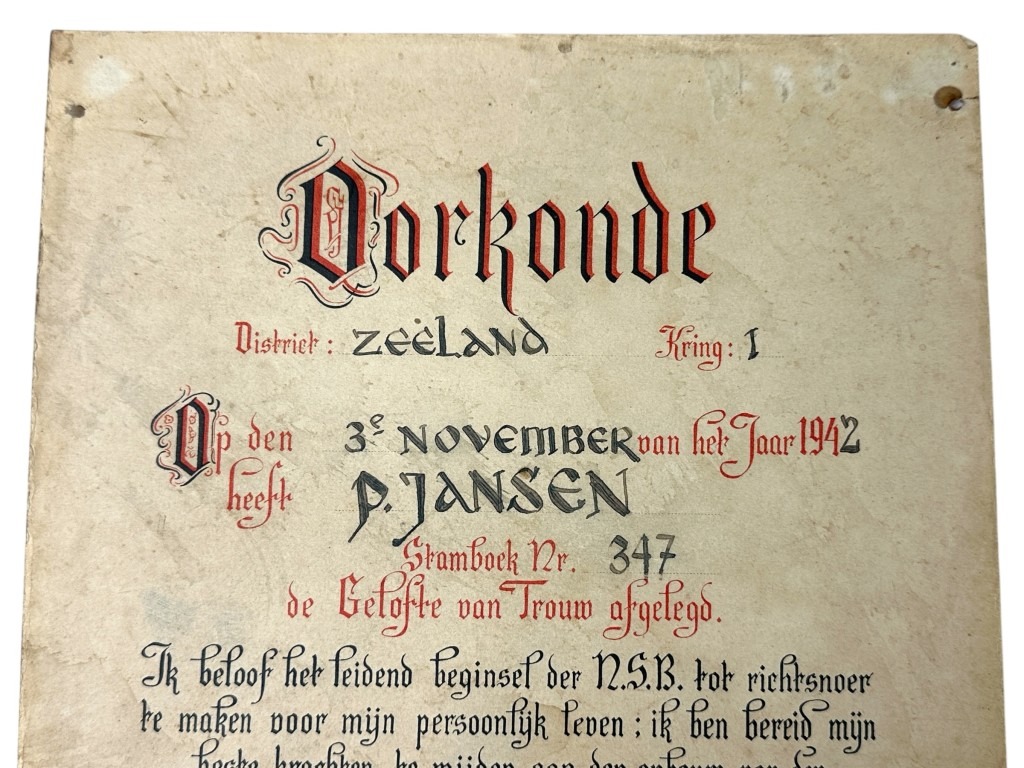 Oorkonde
District: ZEELAND Kring: I
Op den 3e NOVEMBER van het Jaar 1942
heeft P. JANSEN
Stamboek Nr. 347
de Gelofte van Trouw afgelegd.
Ik beloof het leidend beginsel der N.S.B. tot richtsnoer
te maken voor mijn persoonlijk leven; ik ben bereid mijn
beste krachten te wijden aan den opbouw van den